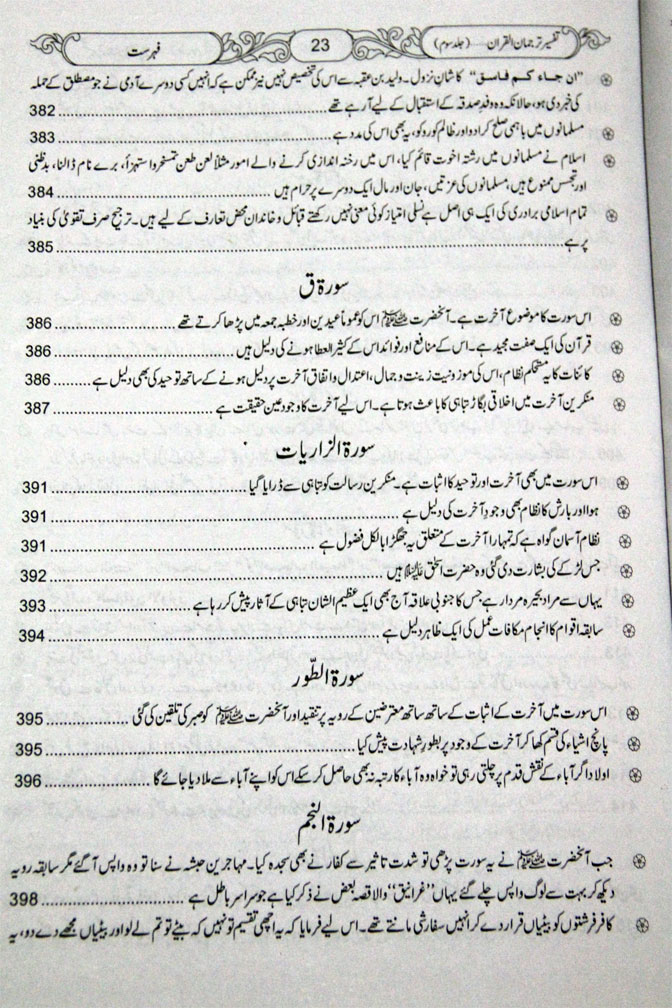 تفسیر ترجمان القرآن (جلد سوم)
23
فہرست
"ان جاء کم فاسق" کا شان نزول۔ ولید بن عقبہ سے اس کی تخصیص نہیں نیز ممکن ہے کہ انہیں کسی دوسرے آدمی نے جو مصطلق کے حملہ
کی خبر دی ہو، حالانکہ وہ وفد صدقہ کے استقبال کے لیے آ رہے تھے 382
مسلمانوں میں باہمی صلح کرا دو اور ظالم کو روکو، یہ بھی اس کی مدد ہے 383
اسلام نے مسلمانوں میں رشتہ اخوت قائم کیا، اس میں رخنہ اندازی کرنے والے امور مثلاً لعن طعن تمسخر و استہزأ، برے نام ڈالنا، بدظنی
اور تجسس ممنوع ہیں، مسلمانوں کی عزتیں، جان اور مال ایک دوسرے پر حرام ہیں 384
تمام اسلامی برادری کی ایک ہی اصل ہے نسلی امتیاز کوئی معنی نہیں رکھتے قبائل و خاندان محض تعارف کے لیے ہیں۔ ترجیح صرف تقویٰ کی بنیاد
پر ہے 385
سورۃ ق
اس سورت کا موضوع آخرت ہے۔ آنحضرت ﷺ اس کو عموماً عیدین اور خطبہ جمعہ میں پڑھا کرتے تھے 386
قرآن کی ایک صفت مجید ہے۔ اس کے منافع اور فوائد اس کے کثیر العطا ہونے کی دلیل ہیں 386
کائنات کا یہ مستحکم نظام، اس کی موزونیت زینت و جمال، اعتدال و اتفاق آخرت پر دلیل ہونے کے ساتھ توحید کی بھی دلیل ہے 386
منکرین آخرت میں اخلاقی بگاڑ تباہی کا باعث ہوتا ہے۔ اس لیے آخرت کا وجود عین حقیقت ہے 387
سورۃ الزاریات
اس سورت میں بھی آخرت اور توحید کا اثبات ہے منکرین رسالت کو تباہی سے ڈرایا گیا 391
ہوا اور بارش کا نظام بھی وجود آخرت کی دلیل ہے 391
نظام آسمان گواہ ہے کہ تمہارا آخرت کے متعلق یہ جھگڑا بالکل فضول ہے 391
جس لڑکے کی بشارت دی گئی وہ حضرت اسحٰق علیہ السلام ہیں 392
یہاں سے مراد بحیرہ مردار ہے جس کا جنوبی علاقہ آج بھی ایک عظیم الشان تباہی کے آثار پیش کر رہا ہے 393
سابقہ اقوام کا انجام مکافات عمل کی ایک ظاہر دلیل ہے 394
سورۃ الطّور
اس سورت میں آخرت کے اثبات کے ساتھ ساتھ معترضین کے رویہ پر تنقید اور آنحضرت ﷺ کو صبر کی تلقین کی گئی 395
پانچ اشیاء کی قسم کھا کر آخرت کے وجود پر بطور شہادت پیش کیا 395
اولاد اگر آباء کے نقش قدم پر چلتی رہی تو خواہ وہ آباء کا رتبہ نہ بھی حاصل کر سکے اس کو اپنے آباء سے ملا دیا جائے گا 396
سورۃ النجم
جب آنحضرت ﷺ نے یہ سورت پڑھی تو شدت تاثیر سے کفار نے بھی سجدہ کیا۔ مہاجرین حبشہ نے سنا تو وہ واپس آ گئے مگر سابقہ رویہ
دیکھ کر بہت سے لوگ واپس چلے گئے یہاں "غرانیق" والا قصہ بعض نے ذکر کیا ہے جو سراسر باطل ہے 398
کافر فرشتوں کو بیٹیاں قرار دے کر انہیں سفارشی مانتے تھے۔ اس لیے فرمایا کہ یہ اچھی تقسیم تو نہیں کہ بیٹے تو تم لے لو اور بیٹیاں مجھے دے دو، یہ